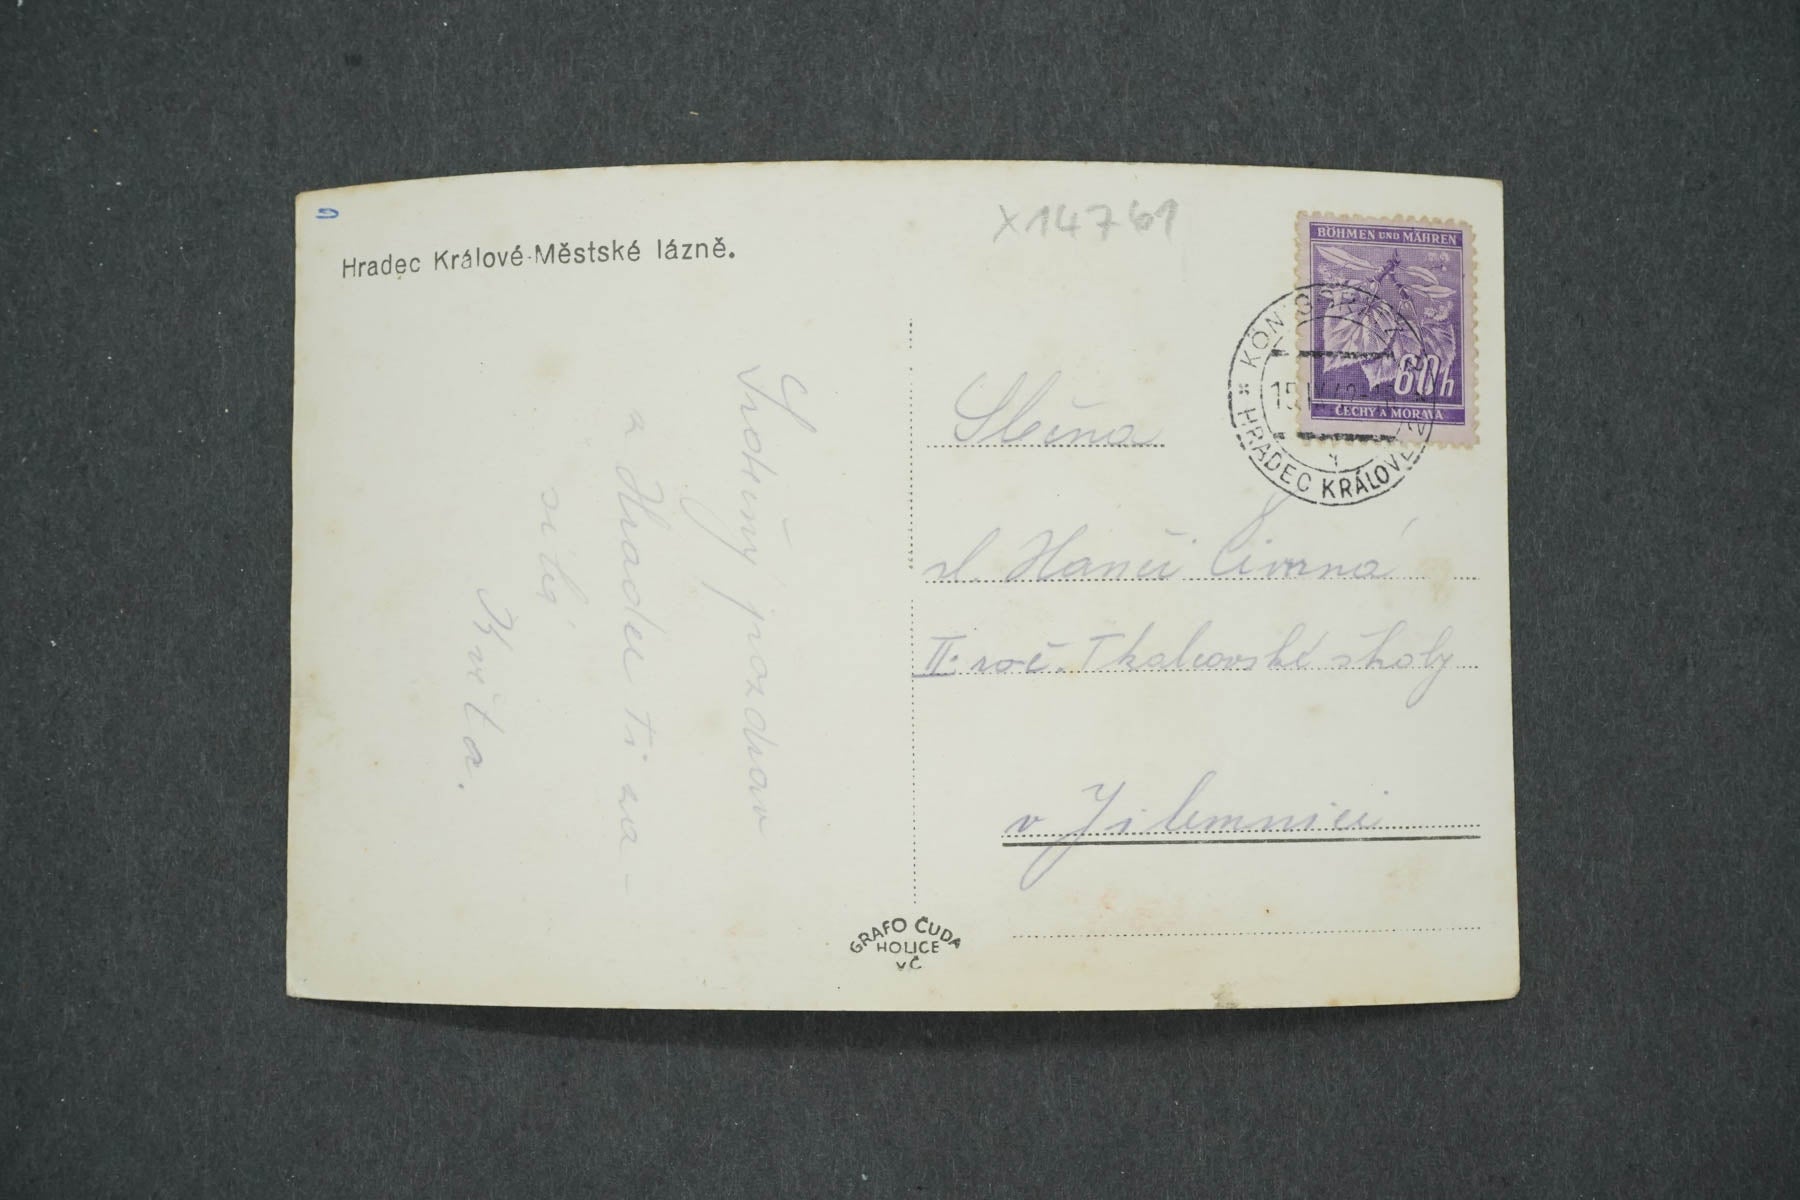 Hradec Králové-Městské lázně.
x14761
BÖHMEN UND MÄHREN
60h
ČECHY A MORAVA
KÖNIGGRÄTZ 2
15.IV.42
HRADEC KRÁLOVÉ 2
Srdečný pozdrav
z Hradce Ti za-
sílá
Květa.
Slečna
sl. Hanči
II. roč. Tkalcovské školy
v Jilemnici
GRAFO ČUDA
HOLICE
vČ